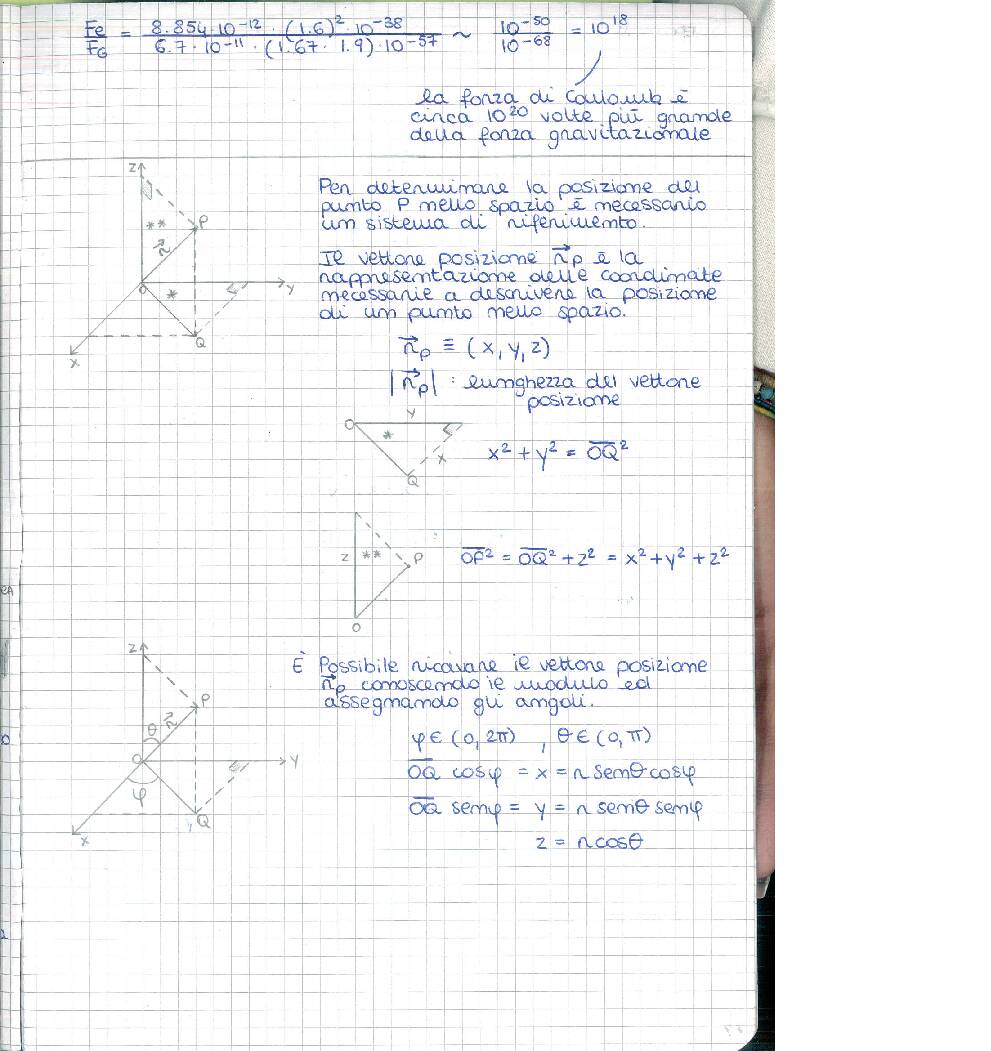 Fe/FG = 8.854·10⁻¹² · (1.6)² · 10⁻³⁸ / 6.7 · 10⁻¹¹ · (1.67 · 1.9) · 10⁻⁵⁷ ~ 10⁻⁵⁰/10⁻⁶⁸ = 10¹⁸
la forza di Coulomb è
circa 10²⁰ volte più grande
della forza gravitazionale
z
** P
r⃗
O * y
Q
x
Per determinare la posizione del
punto P nello spazio è necessario
un sistema di riferimento.
Il vettore posizione r⃗p è la
rappresentazione delle coordinate
necessarie a descrivere la posizione
di un punto nello spazio.
r⃗p ≡ (x, y, z)
|r⃗p| : lunghezza del vettore
posizione
y
O * x
Q
x² + y² = O̅Q̅²
z ** P
O
O̅P̅² = O̅Q̅² + z² = x² + y² + z²
z
P
θ r⃗
O y
φ
Q
x
È Possibile ricavare il vettore posizione
r⃗p conoscendo il modulo ed
assegnando gli angoli.
φ ∈ (0, 2π) , θ ∈ (0, π)
O̅Q̅ cosφ = x = r senθ cosφ
O̅Q̅ senφ = y = r senθ senφ
z = r cosθ